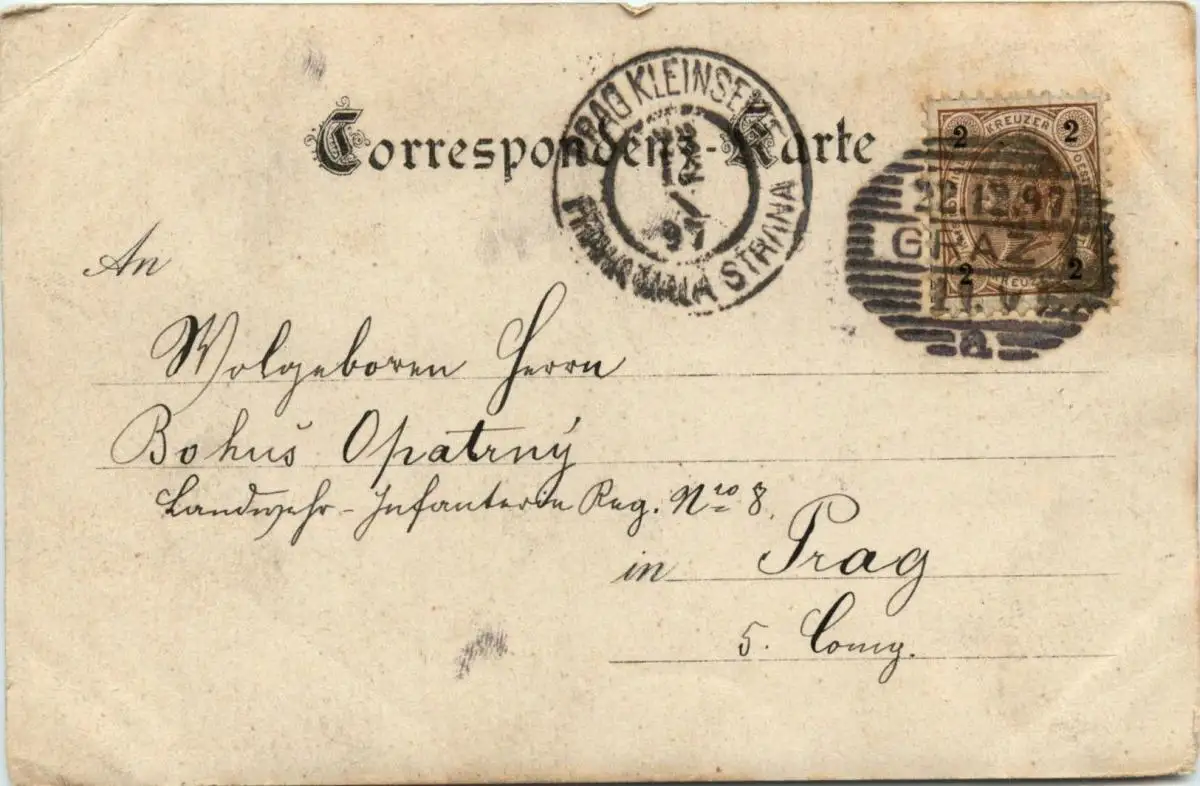 Correspondenz-Karte
PRAG KLEINSEITE
23
12
97
MALÁ STRANA
2 KREUZER 2
2 KREUZER 2
22.12.97
GRAZ
a
An
Wolgeboren Herrn
Bohuš Opatrný
Landwehr-Infanterie Reg. Nro 8.
in Prag
5. Comg.